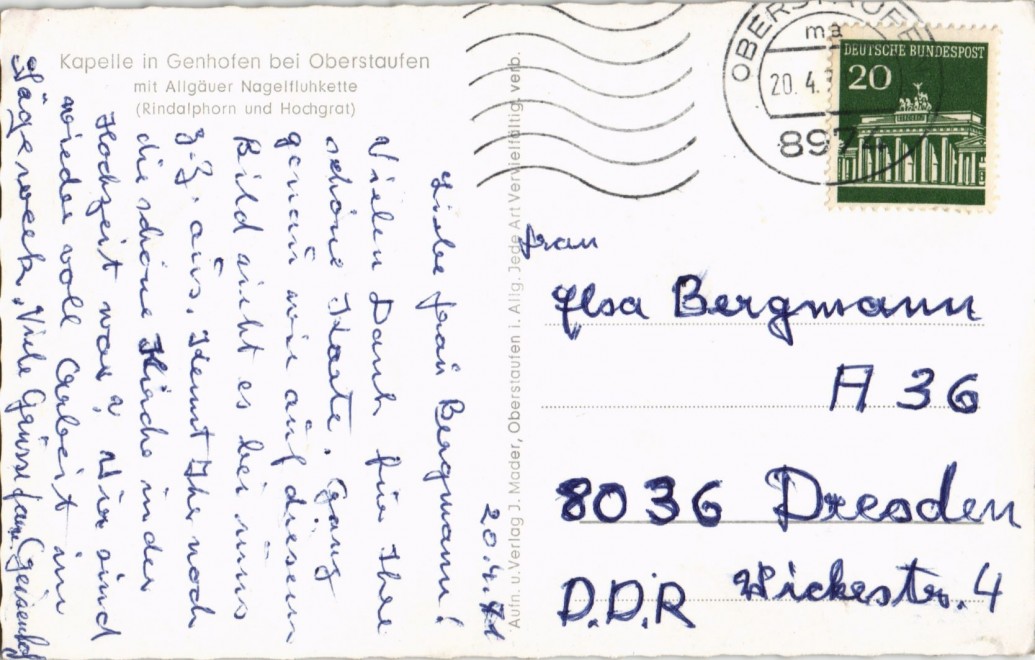 Kapelle in Genhofen bei Oberstaufen
mit Allgäuer Nagelfluhkette
(Rindalphorn und Hochgrat)
20.4.71
Liebe Frau Bergmann!
Vielen Dank für Ihre
schöne Karte. Ganz
genau wie auf diesem
Bild sieht es bei uns
z.Z. aus. Kennt Ihr noch
die schöne Kirche in der
Hochzeit war? Wir sind
wieder voll Arbeit im
Sägewerk. Viele Grüsse Fam.
Aufn. u. Verlag J. Mader, Oberstaufen i. Allg. Jede Art Vervielfältig. verb.
OBERSTAUFEN
20.4.
8974
DEUTSCHE BUNDESPOST
20
Frau
Ilsa Bergmann
A 36
8036 Dresden
D.D.R Wickestr. 4